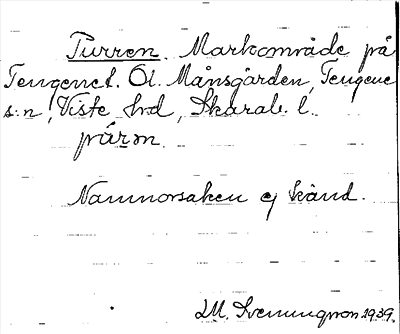 Purren. Markområde på
Tengenet. Öl. Månsgården, Tengene
s:n, Viste hrd, Skarab. l.
pùr̀n.
Namnorsaken ej känd.
M. Svenungson 1939.